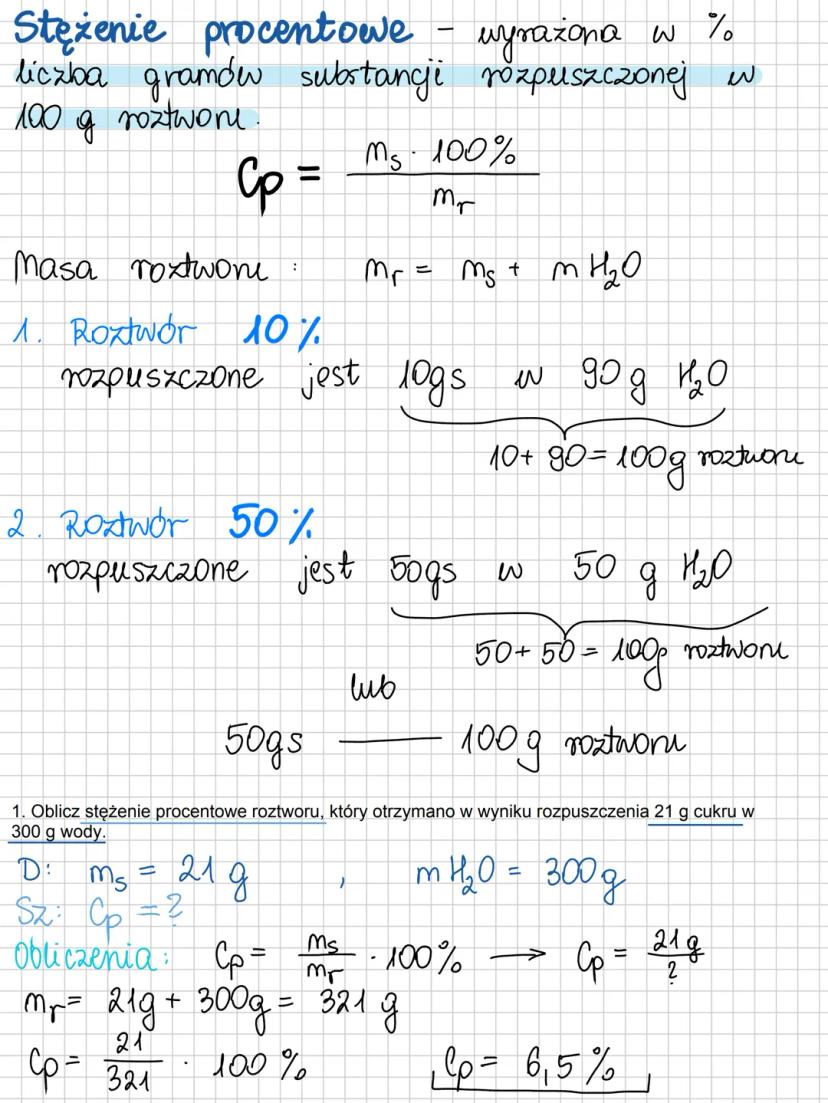 Stężenie procentowe - wyrażona w %
liczba gramów substancji rozpuszczonej w
100 g roztworu.
Cp = ms · 100% / mr
Masa roztworu : mr = ms + m H₂O
1. Roztwór 10%
rozpuszczone jest 10gs w 90 g H₂O
10+ 90= 100g roztworu
2. Roztwór 50%
rozpuszczone jest 50gs w 50 g H₂O
50+ 50 = 100g roztworu
lub
50gs —— 100g roztworu
1. Oblicz stężenie procentowe roztworu, który otrzymano w wyniku rozpuszczenia 21 g cukru w
300 g wody.
D: ms = 21 g , m H₂O = 300g
Sz: Cp = ?
Obliczenia: Cp = ms / mr · 100% → Cp = 21g / ?
mr= 21g + 300g = 321 g
Cp = 21 / 321 · 100 % Cp = 6,5%